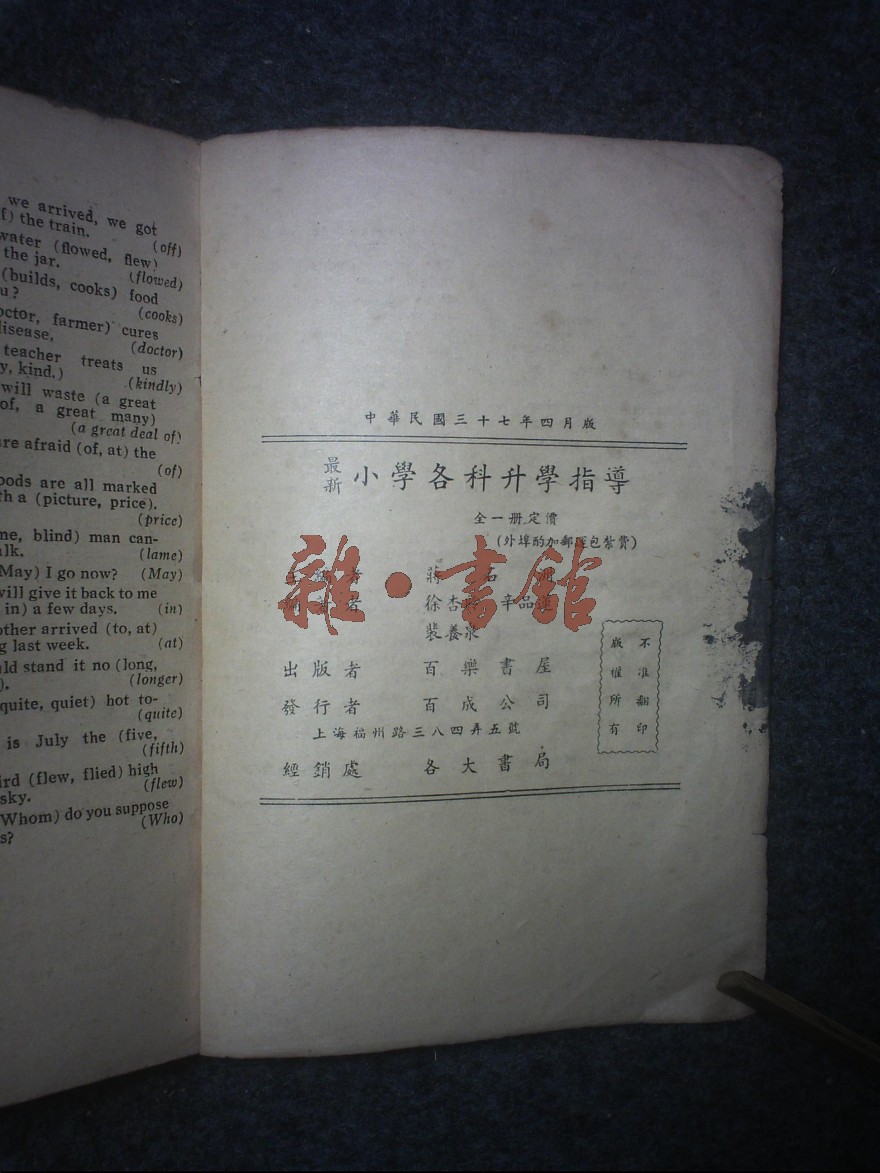 we arrived, we got
f) the train. (off)
water (flowed, flew)
the jar. (flowed)
(builds, cooks) food
u? (cooks)
octor, farmer) cures
disease, (doctor)
teacher treats us
y, kind.) (kindly)
will waste (a great
of, a great many)
(a great deal of)
re afraid (of, at) the
(of)
oods are all marked
th a (picture, price).
(price)
me, blind) man can-
alk. (lame)
May) I go now? (May)
will give it back to me
in) a few days. (in)
other arrived (to, at)
g last week. (at)
uld stand it no (long,
). (longer)
quite, quiet) hot to-
(quite)
is July the (five,
(fifth)
ird (flew, flied) high
sky. (flew)
Whom) do you suppose
s? (Who)
中華民國三十七年四月版
最新 小學各科升學指導
全一册定價
(外埠酌加郵運包紮費)
者 蔣
者 徐杏 辛品蓮
裴養泉
出版者 百樂書屋
發行者 百成公司
上海福州路三八四弄五號
經銷處 各大書局
不准翻印
版權所有
雜·書館